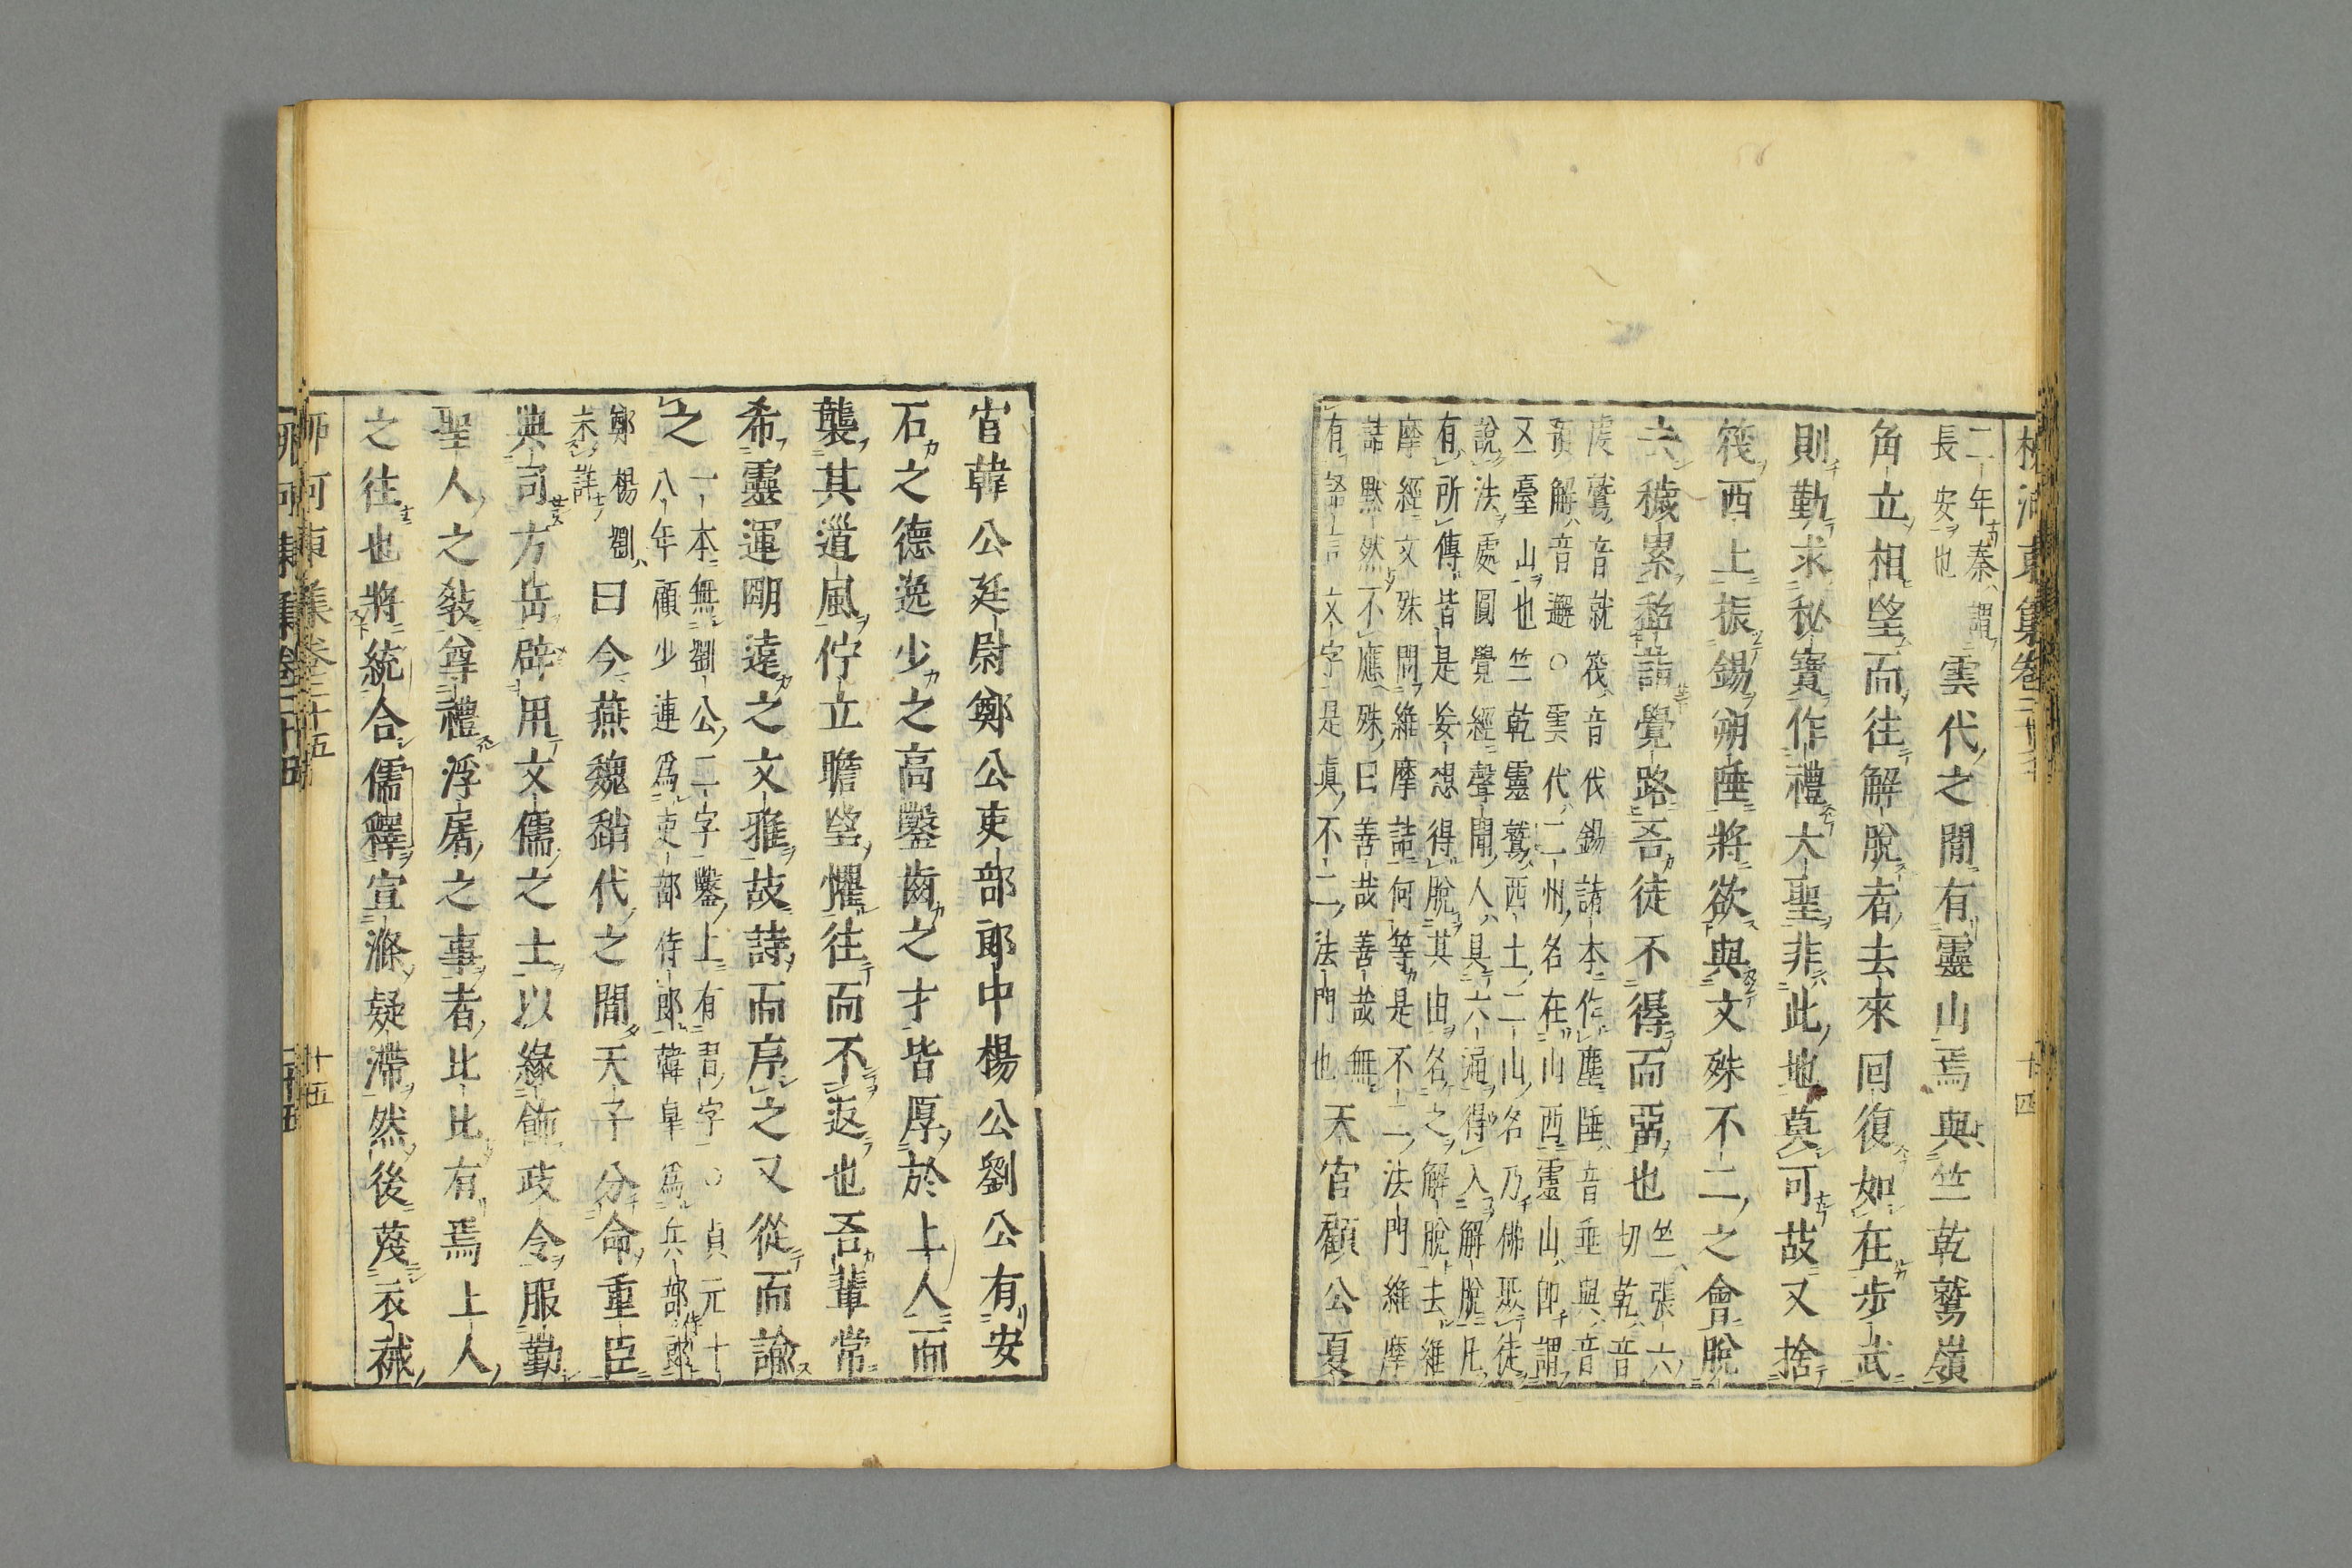 柳河東集卷二十五
十四
二年秦謂
長安也
雲代之間有靈山焉與竺乾鷲嶺
角立相望而往解脫者去來回復如在步武
則勤求秘寶作禮大聖非此地莫可故又捨
筏西土振錫朔陲將欲與文殊不二之會脫
去穢累超詣覺路吾徒不得而罶也
竺張六
切乾音
虔鷲音就筏音伐錫諸本作塵陲音垂與音
預解音邂○雲代二州名在山西靈山卽謂
五臺山也竺乾靈鷲西土二山名乃佛聚徒
說法處圓覺經聲聞人具六通得入解脫凡
有所傳皆是妄想得脫其由名之解脫去維
摩經文殊問維摩詰何等是不二法門維摩
詰默然不應殊曰善哉善哉無
有
言文字是眞不二法門也
天官顧公夏
官韓公廷尉鄭公吏部郎中楊公劉公有安
石之德逸少之高鑿齒之才皆厚於上人而
襲其道風佇立瞻望懼往而不返也吾輩常
希靈運明遠之文雅故詩而序之又從而諭
之
一本無劉公二字鑿上有習字○貞元十
八年顧少連爲吏部侍郎韓皐爲兵部郎
鄭楊劉
未詳
曰今燕魏趙代之間天子分命重臣
典司方岳辟用文儒之士以緣飾政令服勤
聖人之敎尊禮浮屠之事者比比有焉上人
之往也將統合儒釋宣滌疑滯然後蔑衣裓
柳河東集卷二十五
十五